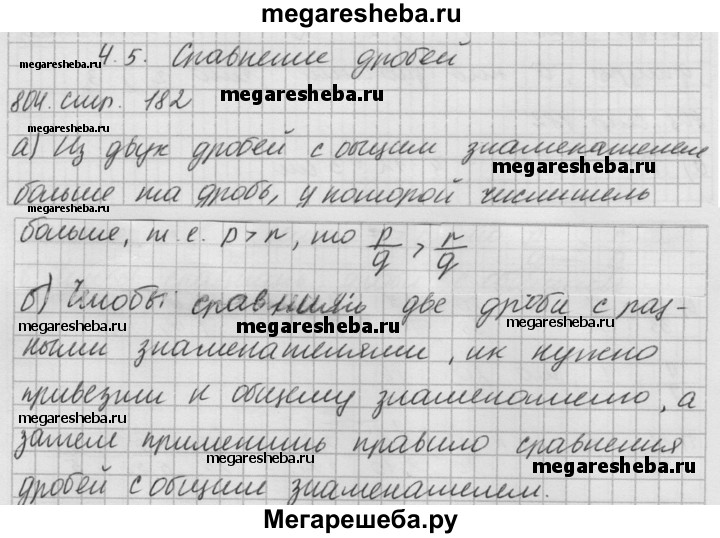 megaresheba.ru
4.5. Сравнение дробей
megaresheba.ru
804. стр. 182 megaresheba.ru
megaresheba.ru
а) Из двух дробей с общим знаменателем
megaresheba.ru
больше та дробь, у которой числитель
megaresheba.ru
больше, т.е. p > r, то p/q > r/q
б) Чтобы сравнить две дроби с раз-
megaresheba.ru megaresheba.ru megaresheba.ru
ными знаменателями, их нужно
привезти к общему знаменателю, а
megaresheba.ru
затем применить правило сравнения
megaresheba.ru megaresheba.ru
дробей с общим знаменателем.
Мегарешеба.ру